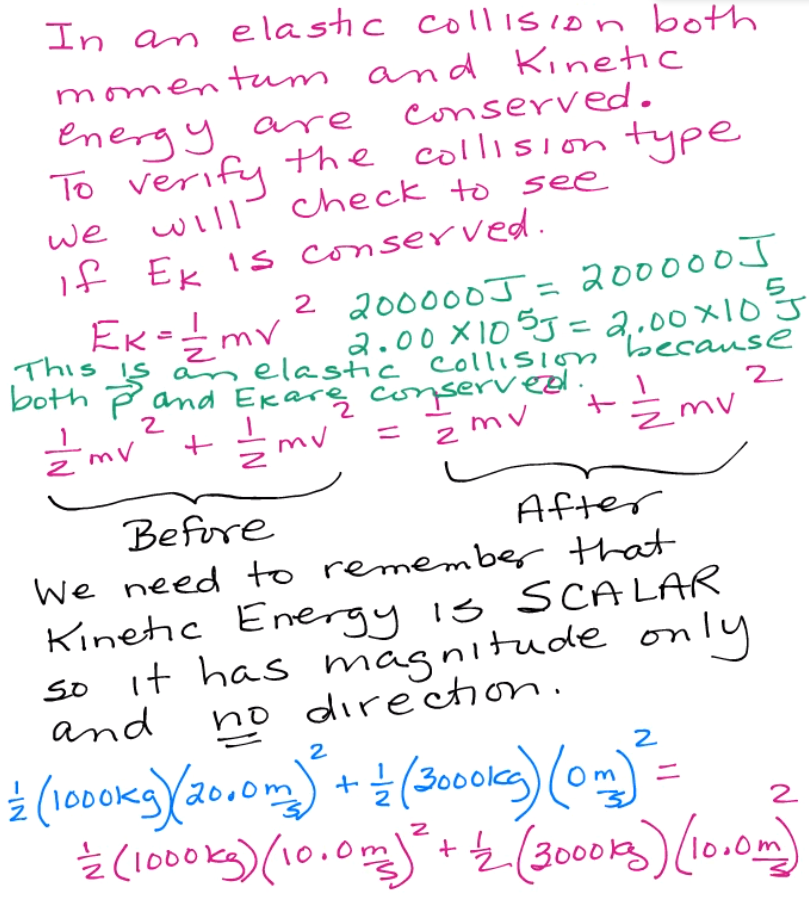 In an elastic collision both
momentum and Kinetic
energy are conserved.
To verify the collision type
we will check to see
if Eᴋ is conserved.
Eᴋ = 1/2 mv² 200000J = 200000J
2.00 × 10⁵J = 2.00 × 10⁵J
This is an elastic collision because
both p⃗ and Eᴋ are conserved.
1/2 mv² + 1/2 mv² = 1/2 mv² + 1/2 mv²
Before After
We need to remember that
Kinetic Energy is SCALAR
so it has magnitude only
and no direction.
1/2 (1000kg)(20.0 m/s)² + 1/2 (3000kg)(0 m/s)² =
1/2 (1000kg)(10.0 m/s)² + 1/2 (3000kg)(10.0 m/s)²